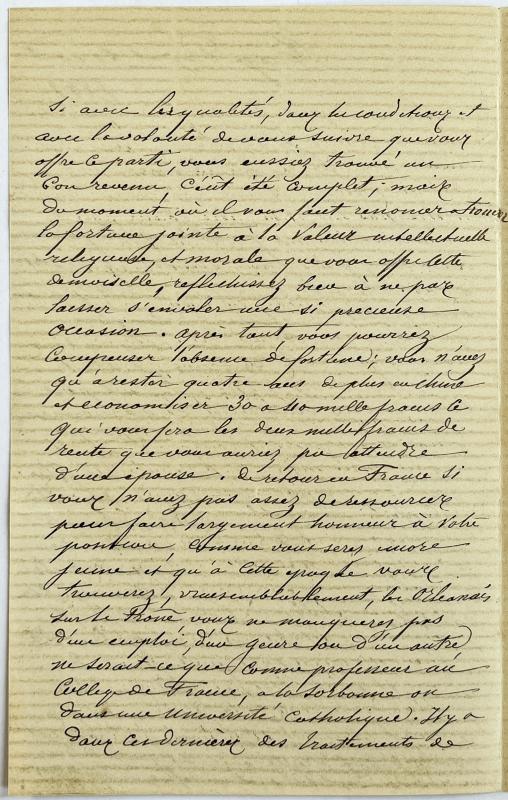 Si avec les qualités, dans les conditions et
avec la volonté de vous suivre que vous
offre ce parti, vous eussiez trouvé un
bon revenu, c'eût été complet; mais
du moment où il vous faut renoncer a trouver
la fortune jointe à la valeur intellectuelle
religieuse, et morale que vous offre cette
demoiselle, reflechissez bien à ne pas
laisser s'envoler une si precieuse
occasion. après tout, vous pourrez
compenser l'absence de fortune; vous n'avez
qu'à rester quatre ans de plus en Chine
et economiser 30 a 40 mille francs ce
qui vous fera les deux mille francs de
rente que vous auriez pu attendre
d'une épouse. de retour en France si
vous n'avez pas assez de ressources
pour faire largement honneur à votre
position, comme vous serez encore
jeune et qu'à cette epoque vous
trouverez, vraisemblablement, les Orleanais
sur le Trône vous ne manquerez pas
d'un emploi, d'un genre ou d'un autre
ne serait-ce que comme professeur au
College de France, a la Sorbonne ou
dans une Université Catholique. Il y a
dans ces dernières des traitements de